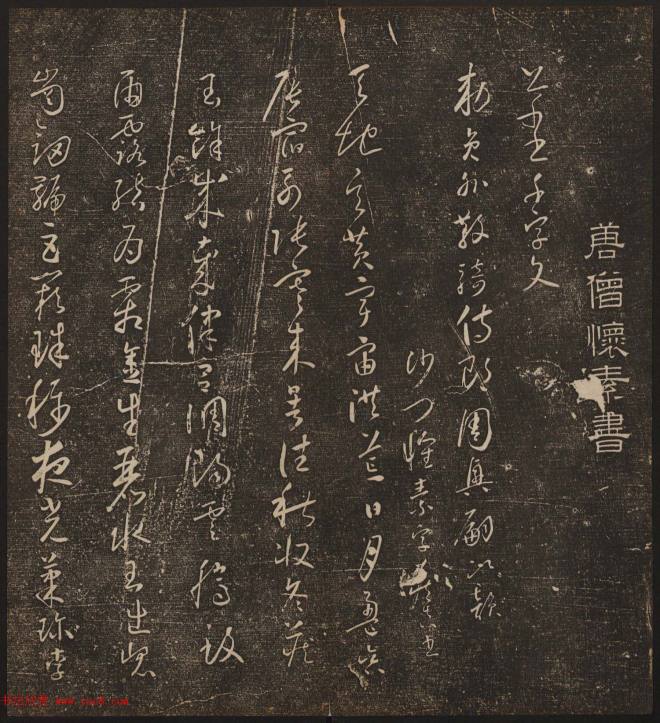 唐僧懷素書
千字文
勅員外散騎侍郎周興嗣次韻
沙門懷素字藏真書
天地玄黃宇宙洪荒日月盈昃
辰宿列張寒來暑往秋收冬藏
閏餘成歲律呂調陽雲騰致
雨露結為霜金生麗水玉出崑
崗劍號巨闕珠稱夜光菓珍李